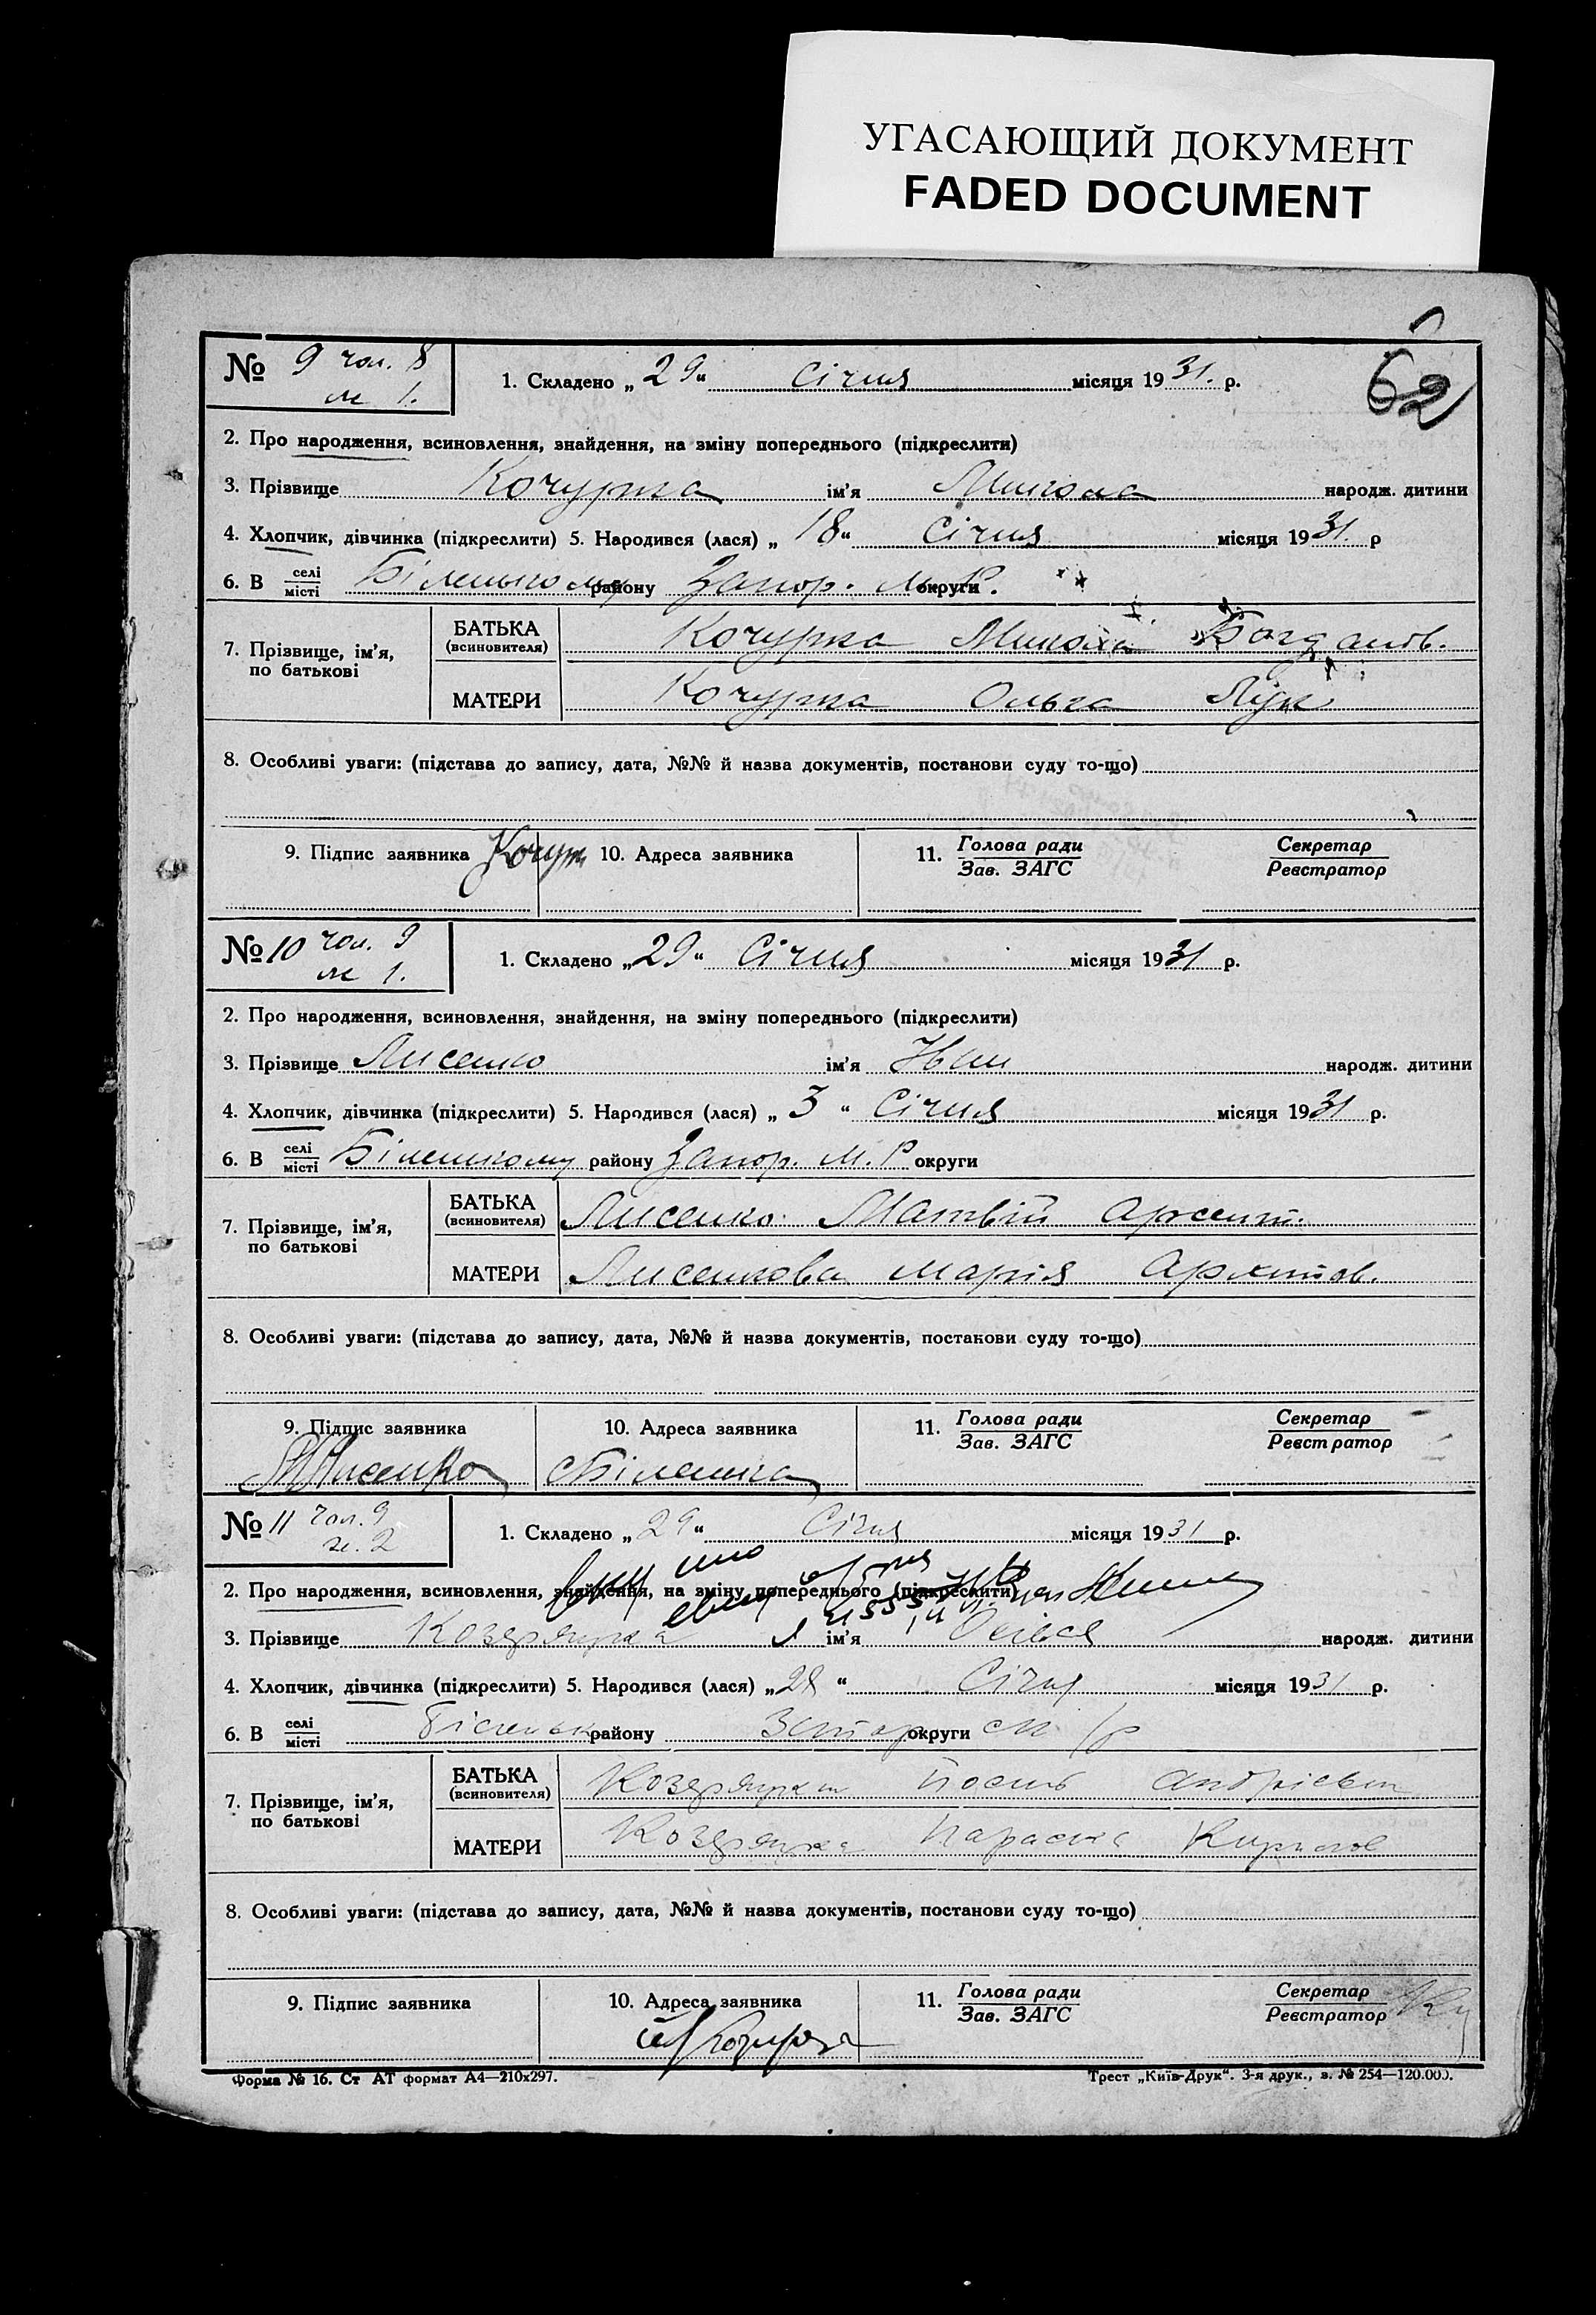 УГАСАЮЩИЙ ДОКУМЕНТ
FADED DOCUMENT
62
№ 9 чол. 8
1.
1. Складено „29“ Січня місяця 1931. р.
2. Про народження, всиновлення, знайдення, на зміну попереднього (підкреслити)
3. Прізвище Кочурка ім'я Микола народж. дитини
4. Хлопчик, дівчинка (підкреслити) 5. Народився (лася) „18“ Січня місяця 1931. р
6. В селі/місті Біленькому району Запор. М.Р. округи
7. Прізвище, ім'я, по батькові
БАТЬКА (всиновителя) Кочурка Микола Богданів.
МАТЕРИ Кочурка Ольга
8. Особливі уваги: (підстава до запису, дата, №№ й назва документів, постанови суду то-що)
9. Підпис заявника 10. Адреса заявника 11. Голова ради/Зав. ЗАГС Секретар/Реєстратор
№ 10 чол. 9
1.
1. Складено „29“ Січня 1931 р. місяця
2. Про народження, всиновлення, знайдення, на зміну попереднього (підкреслити)
3. Прізвище Лисенко ім'я народж. дитини
4. Хлопчик, дівчинка (підкреслити) 5. Народився (лася) „3“ Січня місяця 1931 р.
6. В селі/місті Біленькому району Запор. М.Р округи
7. Прізвище, ім'я, по батькові
БАТЬКА (всиновителя) Лисенко Матвій Арсент.
МАТЕРИ Лисенкова Марія
8. Особливі уваги: (підстава до запису, дата, №№ й назва документів, постанови суду то-що)
9. Підпис заявника 10. Адреса заявника 11. Голова ради/Зав. ЗАГС Секретар/Реєстратор
МЛисенко Біленька
№ 11 чол. 9
2
1. Складено „29“ Січня місяця 1931 р.
2. Про народження, всиновлення, знайдення, на зміну попереднього (підкреслити)
3. Прізвище ім'я народж. дитини
4. Хлопчик, дівчинка (підкреслити) 5. Народився (лася) „28“ Січня місяця 1931 р.
6. В селі/місті району округи
7. Прізвище, ім'я, по батькові
БАТЬКА (всиновителя) Андрієвич
МАТЕРИ Параска Кирилов
8. Особливі уваги: (підстава до запису, дата, №№ й назва документів, постанови суду то-що)
9. Підпис заявника 10. Адреса заявника 11. Голова ради/Зав. ЗАГС Секретар/Реєстратор
Форма № 16. Ст АТ формат А4—210х297. Трест „Київ-Друк“. 3-я друк., з. № 254—120.000.